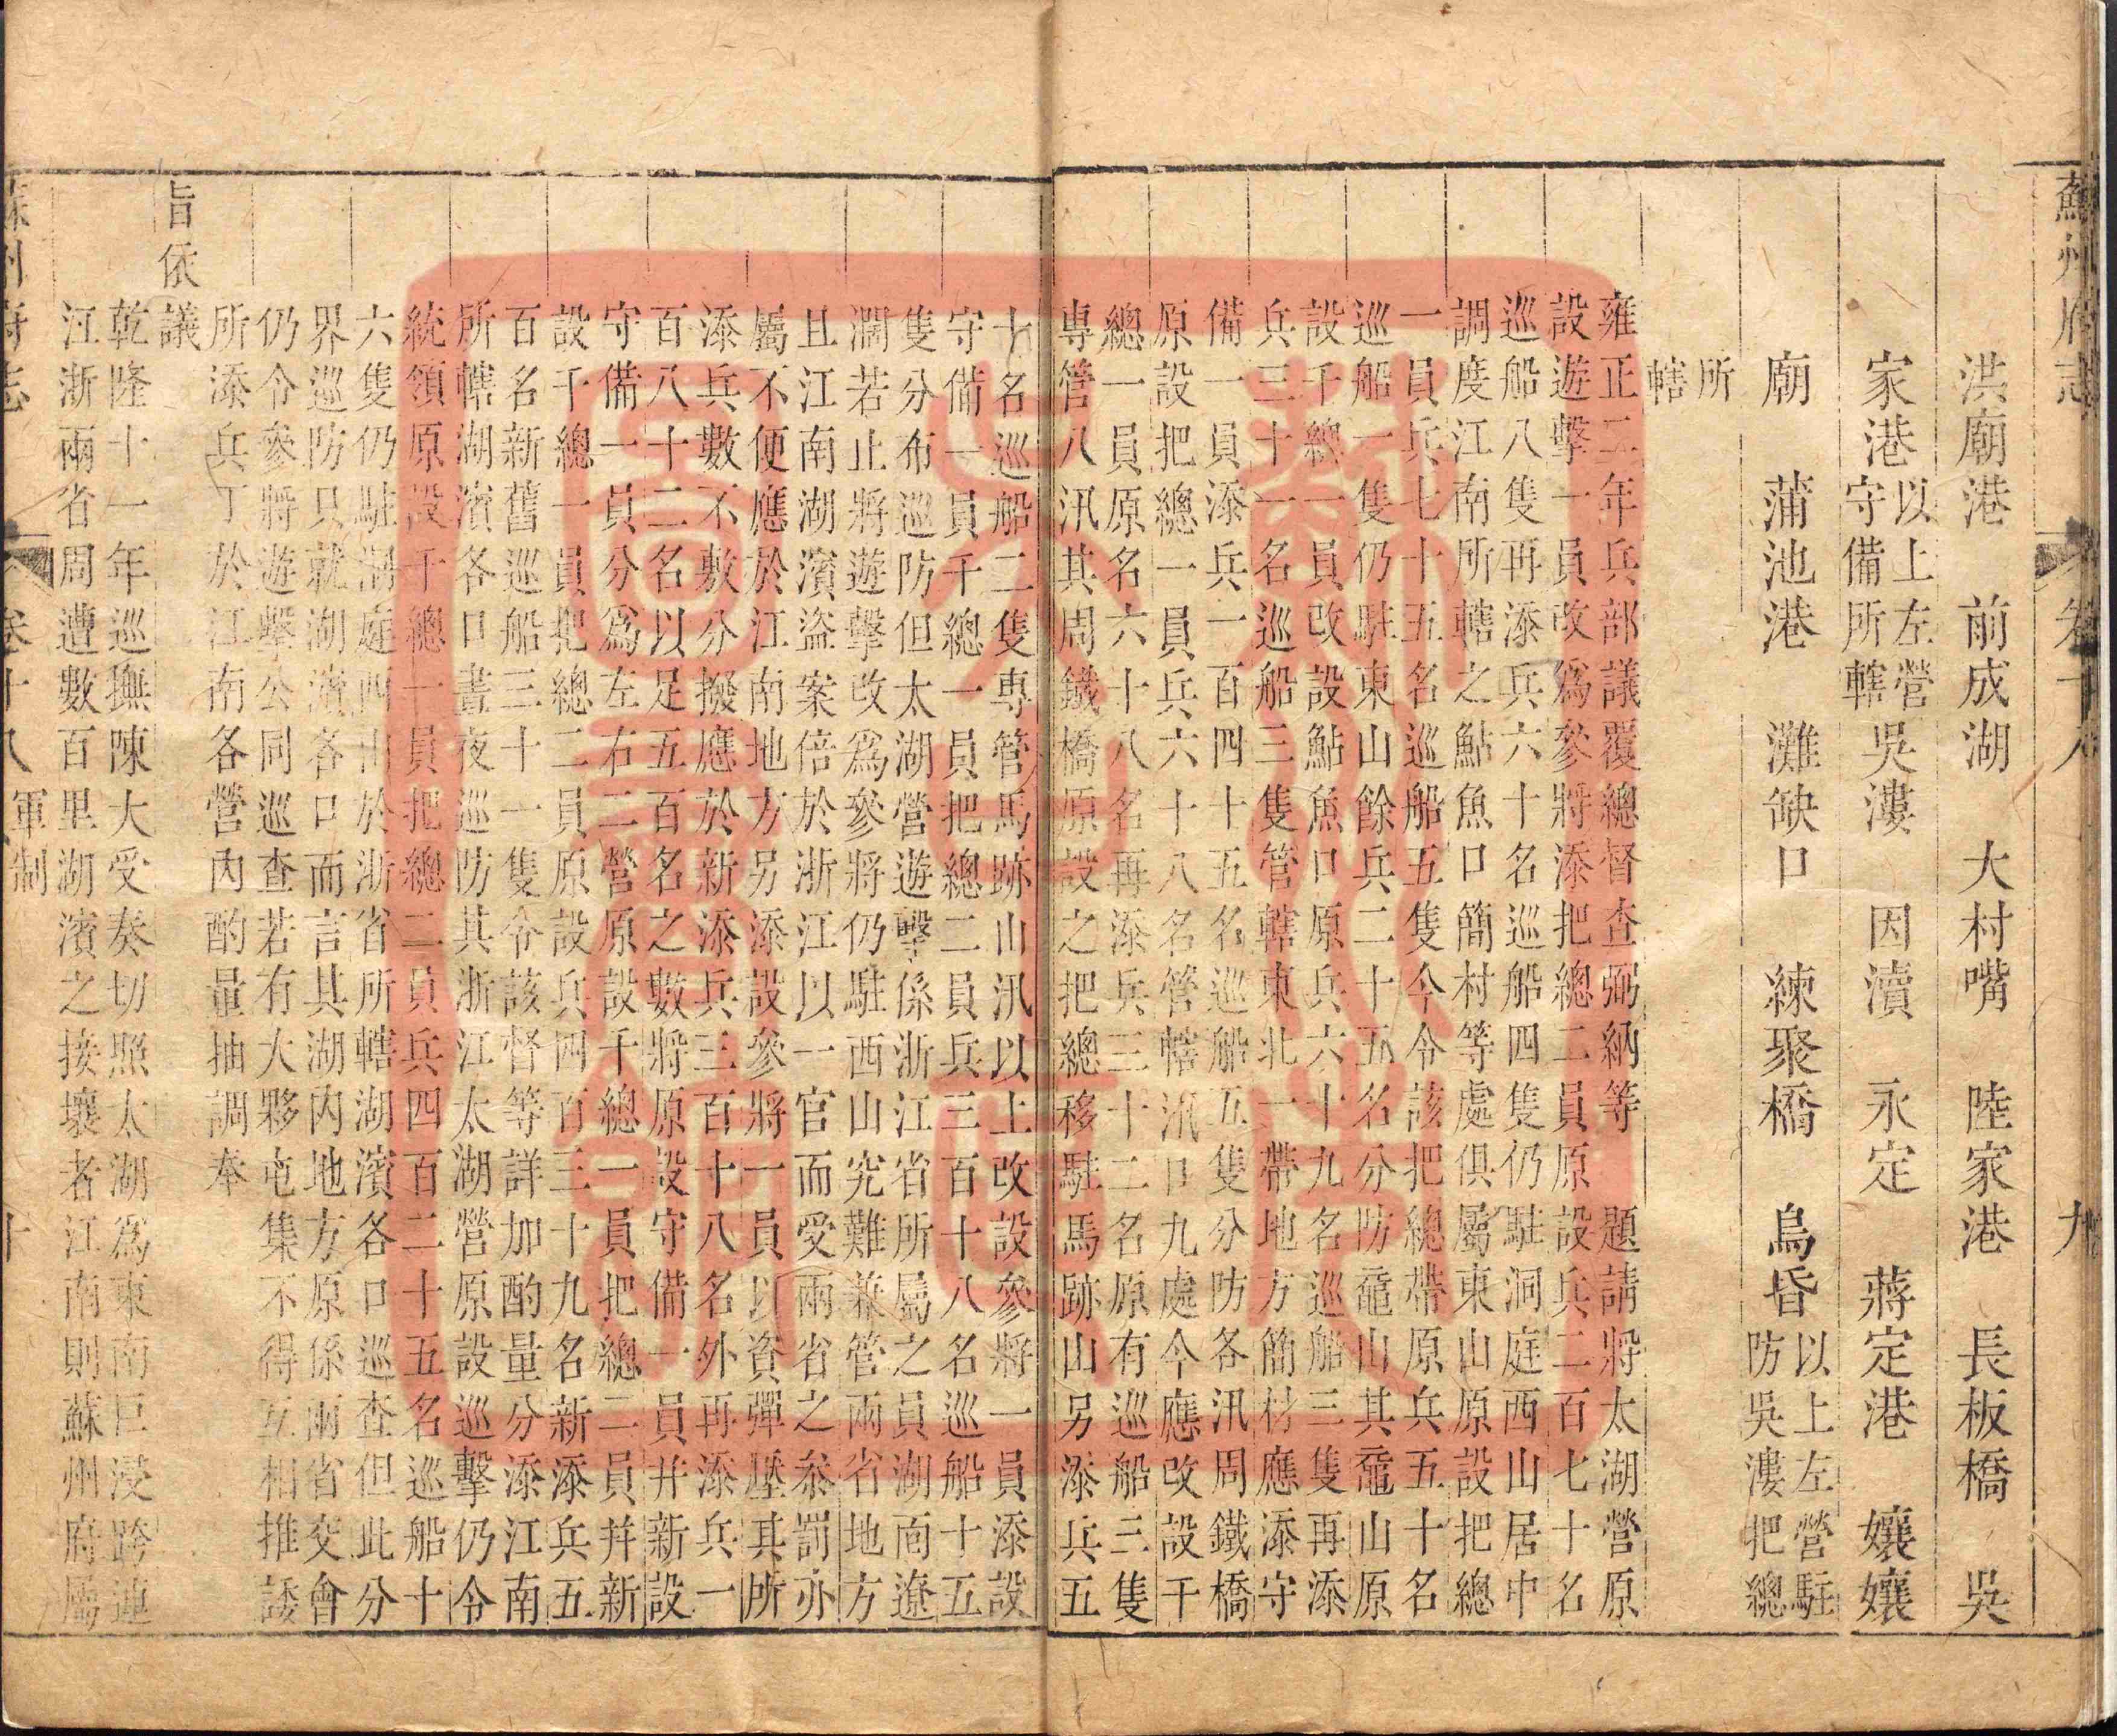 蘇州府志 卷十八 九
洪廟港 前成湖 大村嘴 陸家港 長板橋 吳
家港 以上左營守備所轄 吳漊 因瀆 永定 蔣定港 孃孃
廟 蒲池港 灘缺口 練聚橋 烏昏 以上左營駐防吳漊把總
所轄
雍正二年兵部議覆總督查弼納等 題請將太湖營原
設遊擊一員改爲參將添把總二員原設兵二百七十名
巡船八隻再添兵六十名巡船四隻仍駐洞庭西山居中
調度江南所轄之鮎魚口簡村等處俱屬東山原設把總
一員兵七十五名巡船五隻今令該把總帶原兵五十名
巡船一隻仍駐東山餘兵二十五名分防黿山其黿山原
設千總一員改設鮎魚口原兵六十九名巡船三隻再添
兵三十一名巡船三隻管轄東北一帶地方簡村應添守
備一員添兵一百四十五名巡船五隻分防各汛周鐵橋
原設把總一員兵六十八名管轄汛口九處今應改設千
總一員原名六十八名再添兵三十二名原有巡船三隻
專管八汛其周鐵橋原設之把總移駐馬跡山另添兵五
十名巡船二隻專管馬跡山汛以上改設參將一員添設
守備一員千總一員把總二員兵三百十八名巡船十五
隻分布巡防但太湖營遊擊係浙江省所屬之員湖面遼
濶若止將遊擊改爲參將仍駐西山究難兼管兩省地方
且江南湖濱盜案倍於浙江以一官而受兩省之叅罰亦
屬不便應於江南地方另添設參將一員以資彈壓其所
添兵數不敷分撥應於新添兵三百十八名外再添兵一
百八十二名以足五百名之數將原設守備一員并新設
守備一員分爲左右二營原設千總一員把總二員并新
設千總一員把總二員原設兵四百三十九名新添兵五
百名新舊巡船三十一隻令該督等詳加酌量分添江南
所轄湖濱各口晝夜巡防其浙江太湖營原設巡擊仍令
統領原設千總一員把總二員兵四百二十五名巡船十
六隻仍駐洞庭西山於浙省所轄湖濱各口巡查但此分
界巡防只就湖濱各口而言其湖內地方原係兩省交會
仍令參將遊擊公同巡查若有大夥屯集不得互相推諉
所添兵丁於江南各營內酌量抽調奉
旨依議
乾隆十一年巡撫陳大受奏切照太湖爲東南巨浸跨連
江浙兩省周遭數百里湖濱之接壤者江南則蘇州府屬
蘇州府志 卷十八 軍制 十